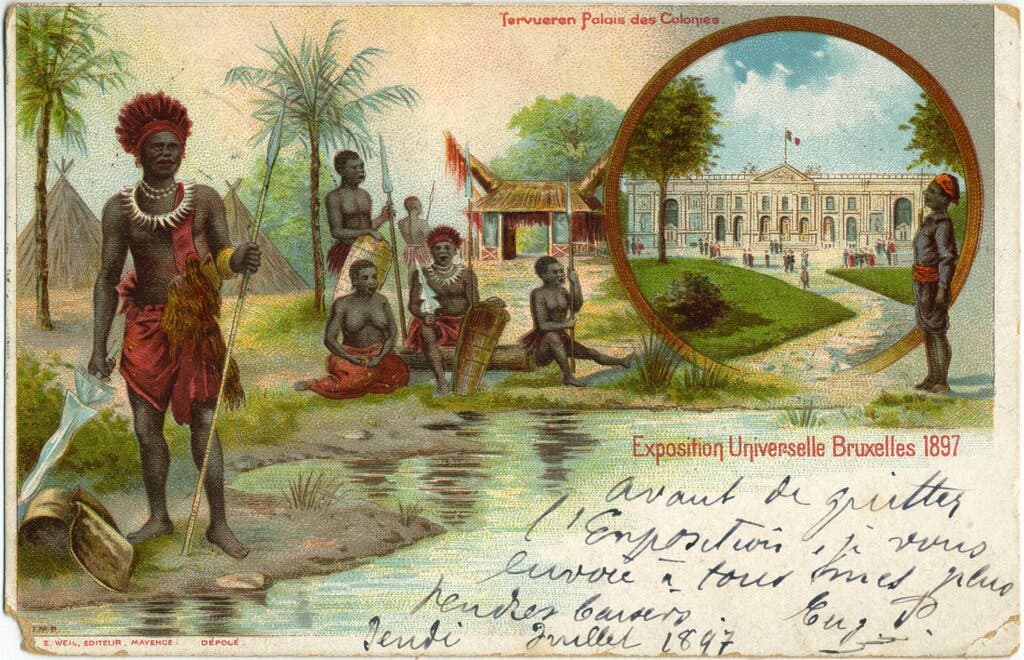 Tervueren Palais des Colonies.
Exposition Universelle Bruxelles 1897
Avant de quitter
l'Exposition, je vous
envoie à tous mes plus
tendres baisers. Eug. P.
Jeudi Juillet 1897
I.M.B.
E. WEIL, EDITEUR, MAYENCE. DÉPOLÉ.